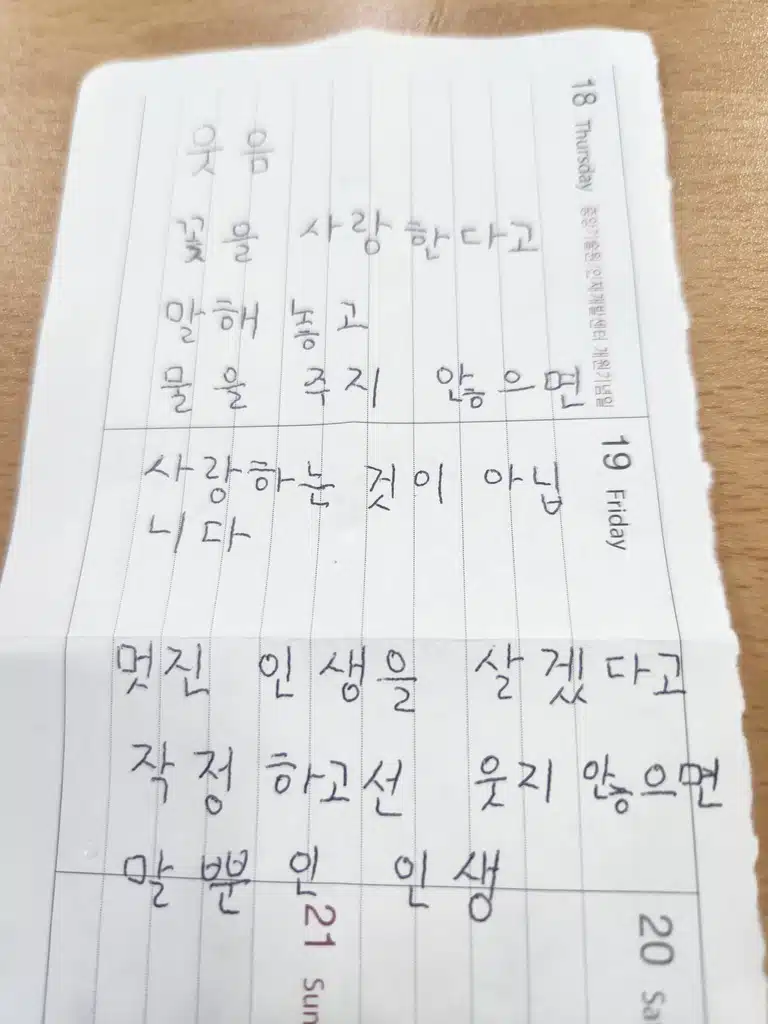 웃음
꽃을 사랑한다고
말해 놓고
물을 주지 않으면
사랑하는 것이 아닙
니다
멋진 인생을 살겠다고
작정 하고선 웃지 않으면
말뿐인 인생
18 Thursday 중앙기술원 인재개발센터 개원기념일
19 Friday
20 Sa
21 Sun